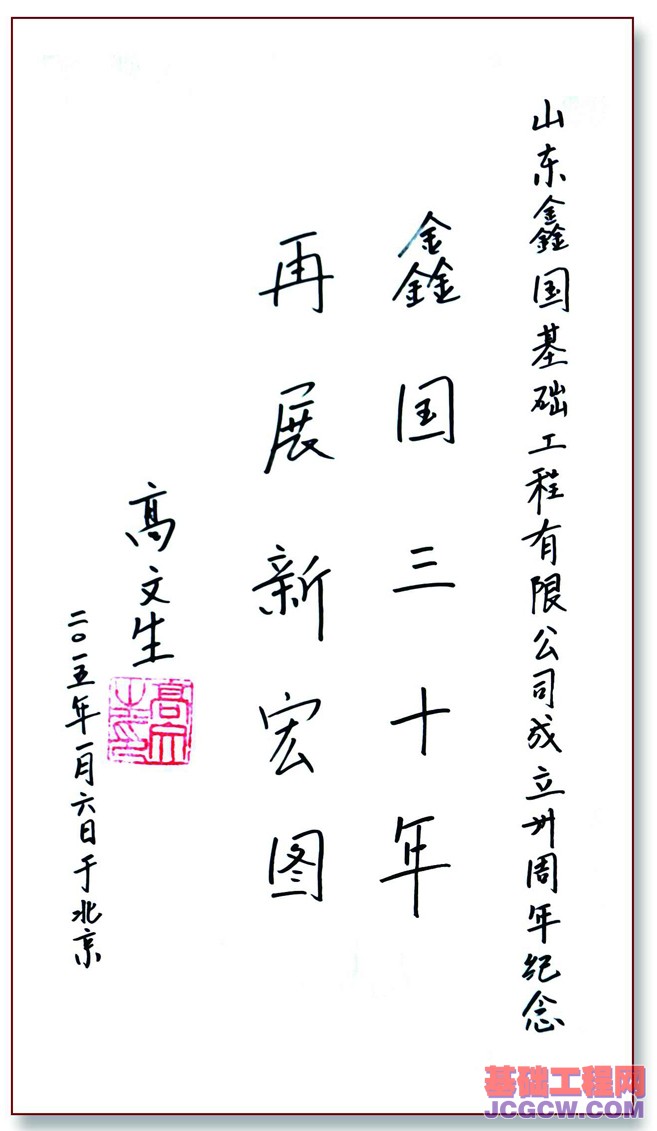 山东鑫国基础工程有限公司成立卅周年纪念
鑫国三十年
再展新宏图
高文生
二〇一五年一月六日于北京
基础工程网
JCGCW.COM